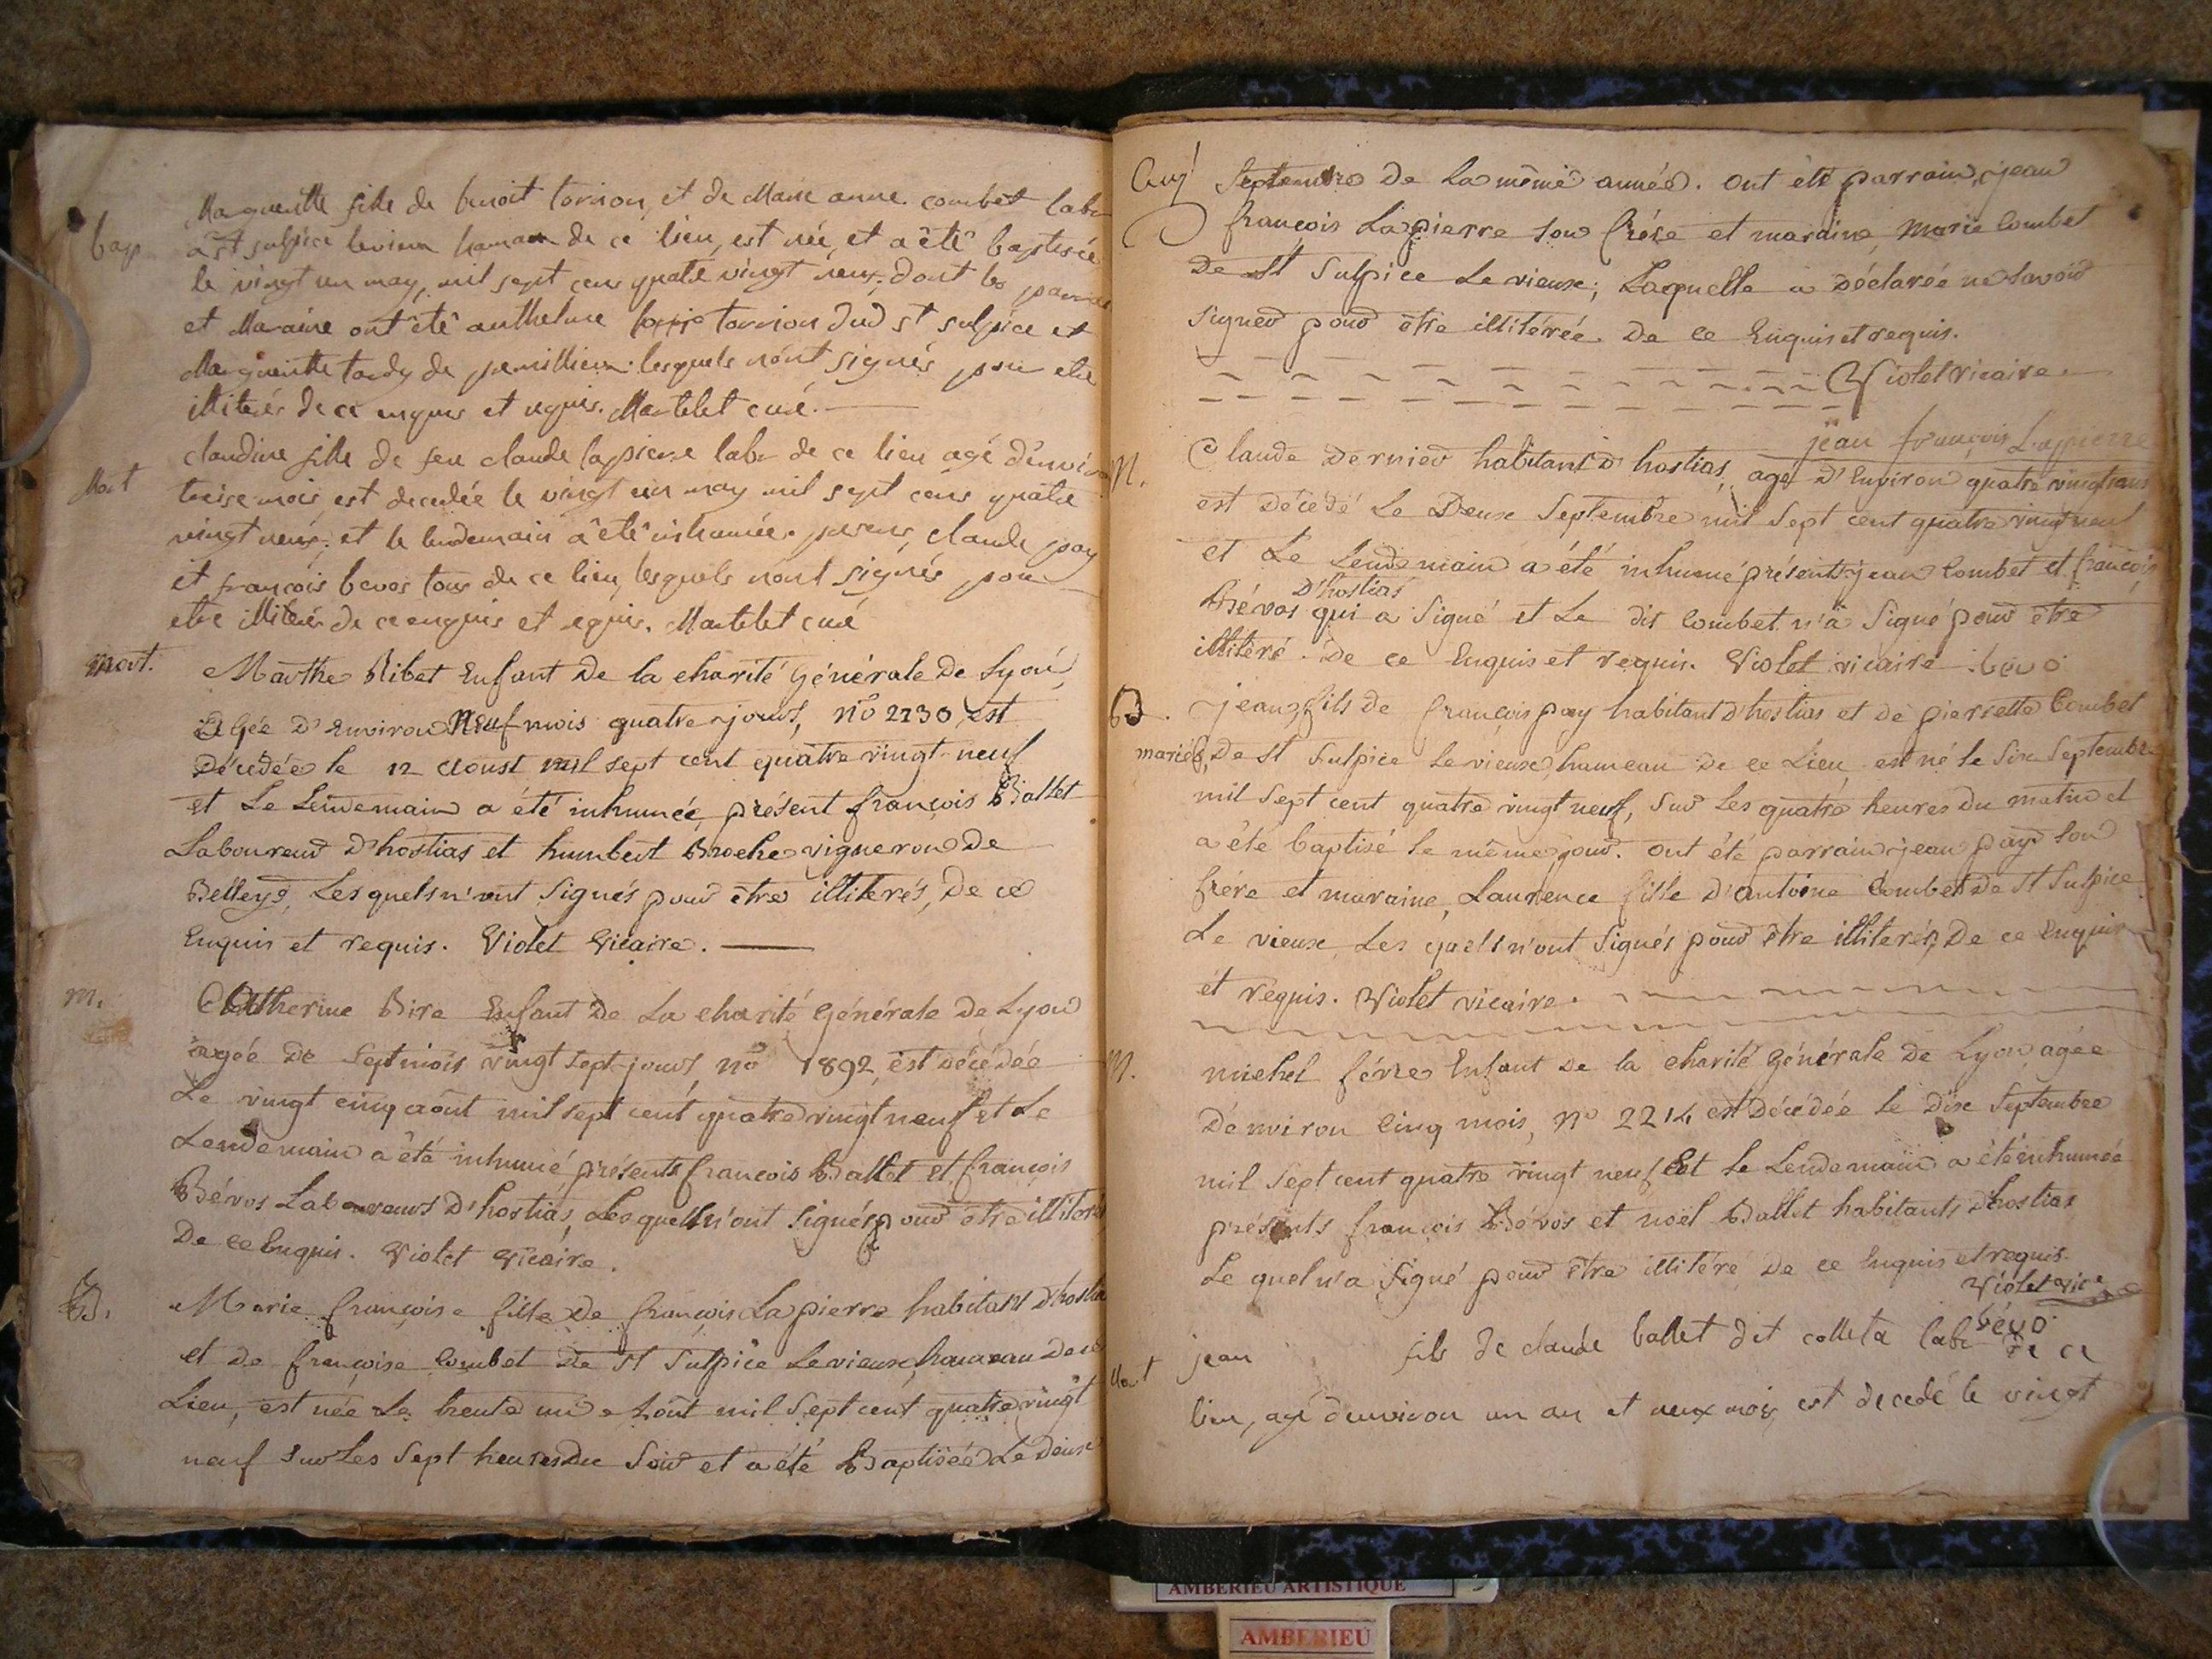 Margueritte fille de benoit torrion, et de Marie anne combet labr
bap. a St sulpice levieux hamau de ce lieu, est née, et a été baptisée
le vingt un may, mil sept cens quatre vingt neuf; dont les parrain
et Maraine ont été anthelme torrion dud st sulpice et
Margueritte tardy de lesquels n'ont signés pour etre
illiterés de ce enquis et requis. Martelet curé.
claudine fille de feu claude lapierre labr de ce lieu agé d'environ
Mort treise mois, est decedée le vingt un may mil sept cens quatre
vingt neuf; et le lendemain a été inhumée. presens, claude pay
et françois bevos tous de ce lieu, lesquels n'ont signés pour
etre illiterés de ce enquis et requis. Martelet curé
mort. Marthe Ribet Enfant De la charité Générale De Lyon,
Agée D'Environ Neuf mois quatre jours, no 2230, est
Décédée le 12 Aoust mil sept cent quatre vingt-neuf
et Le Lendemain a été inhumée, présent françois Ballet
Laboureur D'hostias et humbert Broche vigneron De
Belleys, Lesquels n'ont Signés pour être illiterés, De ce
Enquis et requis. Violet Vicaire.
m. Catherine Bire Enfant De La charité Générale De Lyon
agée De Sept mois vingt sept jours, no 1892, est Décédée
Le vingt cinq août mil sept cent quatre vingt neuf et Le
Lendemain a été inhumé, présents françois Ballet et françois
Bévos Laboureurs D'hostias, Lesquels n'ont Signés pour être illiterés
De ce Enquis. Violet Vicaire.
B. Marie françoise fille De françois Lapierre habitant D'hostias
et De françoise Combet De St Sulpice Le vieux, hameau De ce
Lieu, est née Le trente un août mil Sept cent quatre vingt
neuf Sur Les Sept heures Du Soir et a été Baptisée Le Deux
Septembre De La même année. Ont été parrain, jean
françois Lapierre Son frére et maraine, Marie Combet
De St Sulpice Le vieux; Laquelle a Déclarée ne Savoir
Signer pour être illitérée De ce Enquis et requis.
Violet Vicaire.
jean françois Lapierre
M. Claude Dernier habitant D'hostias, agé D'Environ quatre vingt ans
est Décédé Le Deux Septembre mil Sept cent quatre vingt neuf
et Le Lendemain a été inhumé présents jean Combet et françois
D'hostias
Bévos qui a Signé et Le dit Combet n'a Signé pour être
illitéré. De ce Enquis et requis. Violet vicaire. bevo
B. jean, fils de françois pay habitant d'hostias et de pierrette Combet
mariés, De St Sulpice Le vieux, hameau de ce Lieu, est né le Six Septembre
mil Sept cent quatre vingt neuf, Sur Les quatre heures du matin et
a été baptisé le même jour. ont été parrain jean pay son
frére et maraine, Laurence fille d'antoine Combet De St Sulpice
Le vieux, Lesquels n'ont Signés pour être illiterés, De ce Enquis
et réquis. Violet vicaire.
M. michel févre Enfant De la charité Générale De Lyon agée
D'environ Cinq mois, No 2214 est Décédée Le Dix Septembre
mil Sept cent quatre vingt neuf Et Le Lendemain a été inhumée
présents françois Bévos et noël Ballet habitants D'hostias
Le quel n'a Signé pour être illitéré De ce Enquis et requis.
Violet vicre
bévo
Mort jean fils de claude ballet dit colleta labr de ce
lieu, agé d'environ un an et neuf mois, est decedé le vingt
AMBERIEU ARTISTIQUE
AMBERIEU